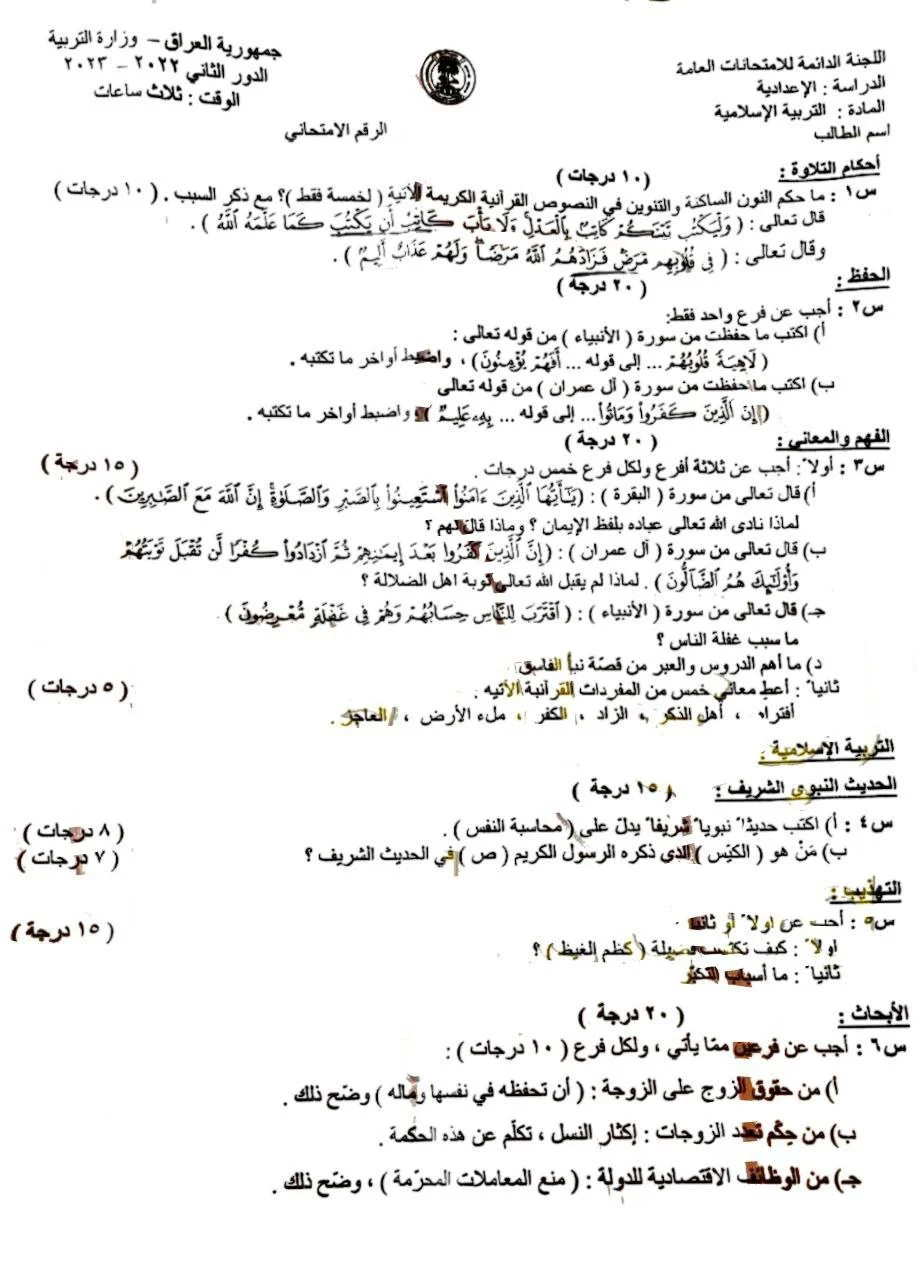 اللجنة الدائمة للامتحانات العامة
الدراسة : الإعدادية
المادة : التربية الإسلامية
اسم الطالب
جمهورية العراق – وزارة التربية
الدور الثاني ٢٠٢٢ – ٢٠٢٣
الوقت : ثلاث ساعات
الرقم الامتحاني
أحكام التلاوة : ( ١٠ درجات )
س١ : ما حكم النون الساكنة والتنوين في النصوص القرآنية الكريمة الآتية ( لخمسة فقط )؟ مع ذكر السبب . ( ١٠ درجات )
قال تعالى : ( وَلْيَكْتُب بَّيْنَكُمْ كَاتِبٌ بِالْعَدْلِ وَلَا يَأْبَ كَاتِبٌ أَن يَكْتُبَ كَمَا عَلَّمَهُ اللَّهُ ) .
وقال تعالى : ( فِي قُلُوبِهِم مَّرَضٌ فَزَادَهُمُ اللَّهُ مَرَضًا وَلَهُمْ عَذَابٌ أَلِيمٌ ) .
الحفظ : ( ٢٠ درجة )
س٢ : أجب عن فرع واحد فقط:
أ) اكتب ما حفظت من سورة ( الأنبياء ) من قوله تعالى :
( لَاهِيَةً قُلُوبُهُمْ ... إلى قوله ... أَفَهُمْ يُؤْمِنُونَ) ، واضبط أواخر ما تكتبه .
ب) اكتب ما حفظت من سورة ( آل عمران ) من قوله تعالى
(إِنَّ الَّذِينَ كَفَرُوا وَمَاتُوا... إلى قوله ... بِهِ عَلِيمٌ ) واضبط أواخر ما تكتبه .
الفهم والمعاني : ( ٢٠ درجة )
س٣ : أولاً : أجب عن ثلاثة أفرع ولكل فرع خمس درجات . ( ١٥ درجة )
أ) قال تعالى من سورة ( البقرة ) : (يَٰٓأَيُّهَا الَّذِينَ ءَامَنُوا اسْتَعِينُوا بِالصَّبْرِ وَالصَّلَوٰةِ إِنَّ اللَّهَ مَعَ الصَّٰبِرِينَ) .
لماذا نادى الله تعالى عباده بلفظ الإيمان ؟ وماذا قال لهم ؟
ب) قال تعالى من سورة ( آل عمران ) : (إِنَّ الَّذِينَ كَفَرُوا بَعْدَ إِيمَٰنِهِمْ ثُمَّ ازْدَادُوا كُفْرًا لَّن تُقْبَلَ تَوْبَتُهُمْ
وَأُولَٰٓئِكَ هُمُ الضَّآلُّونَ ) . لماذا لم يقبل الله تعالى توبة اهل الضلالة ؟
جـ) قال تعالى من سورة ( الأنبياء ) : ( اقْتَرَبَ لِلنَّاسِ حِسَابُهُمْ وَهُمْ فِي غَفْلَةٍ مُّعْرِضُونَ )
ما سبب غفلة الناس ؟
د) ما أهم الدروس والعبر من قصة نبأ الفاسق
ثانياً : أعطِ معاني خمس من المفردات القرآنية الآتيه . ( ٥ درجات )
أفتراه ، أهل الذكر ، الزاد ، الكفر ، ملء الأرض ، العاجز .
التربية الإسلامية :
الحديث النبوي الشريف : ( ١٥ درجة )
س٤ : أ) اكتب حديثاً نبوياً شريفاً يدلّ على ( محاسبة النفس ) . ( ٨ درجات )
ب) مَنْ هو ( الكيّس ) الذي ذكره الرسول الكريم ( ص ) في الحديث الشريف ؟ ( ٧ درجات )
التهذيب :
س٥ : أجب عن اولاً أو ثانياً . ( ١٥ درجة )
اولاً : كيف تكتسب فضيلة ( كظم الغيظ ) ؟
ثانياً : ما أسباب التكبّر
الأبحاث : ( ٢٠ درجة )
س٦ : أجب عن فرعين ممّا يأتي ، ولكل فرع ( ١٠ درجات ) :
أ) من حقوق الزوج على الزوجة : ( أن تحفظه في نفسها وماله ) وضّح ذلك .
ب) من حِكَم تعدد الزوجات : إكثار النسل ، تكلّم عن هذه الحكمة .
جـ) من الوظائف الاقتصادية للدولة : ( منع المعاملات المحرّمة ) ، وضّح ذلك .